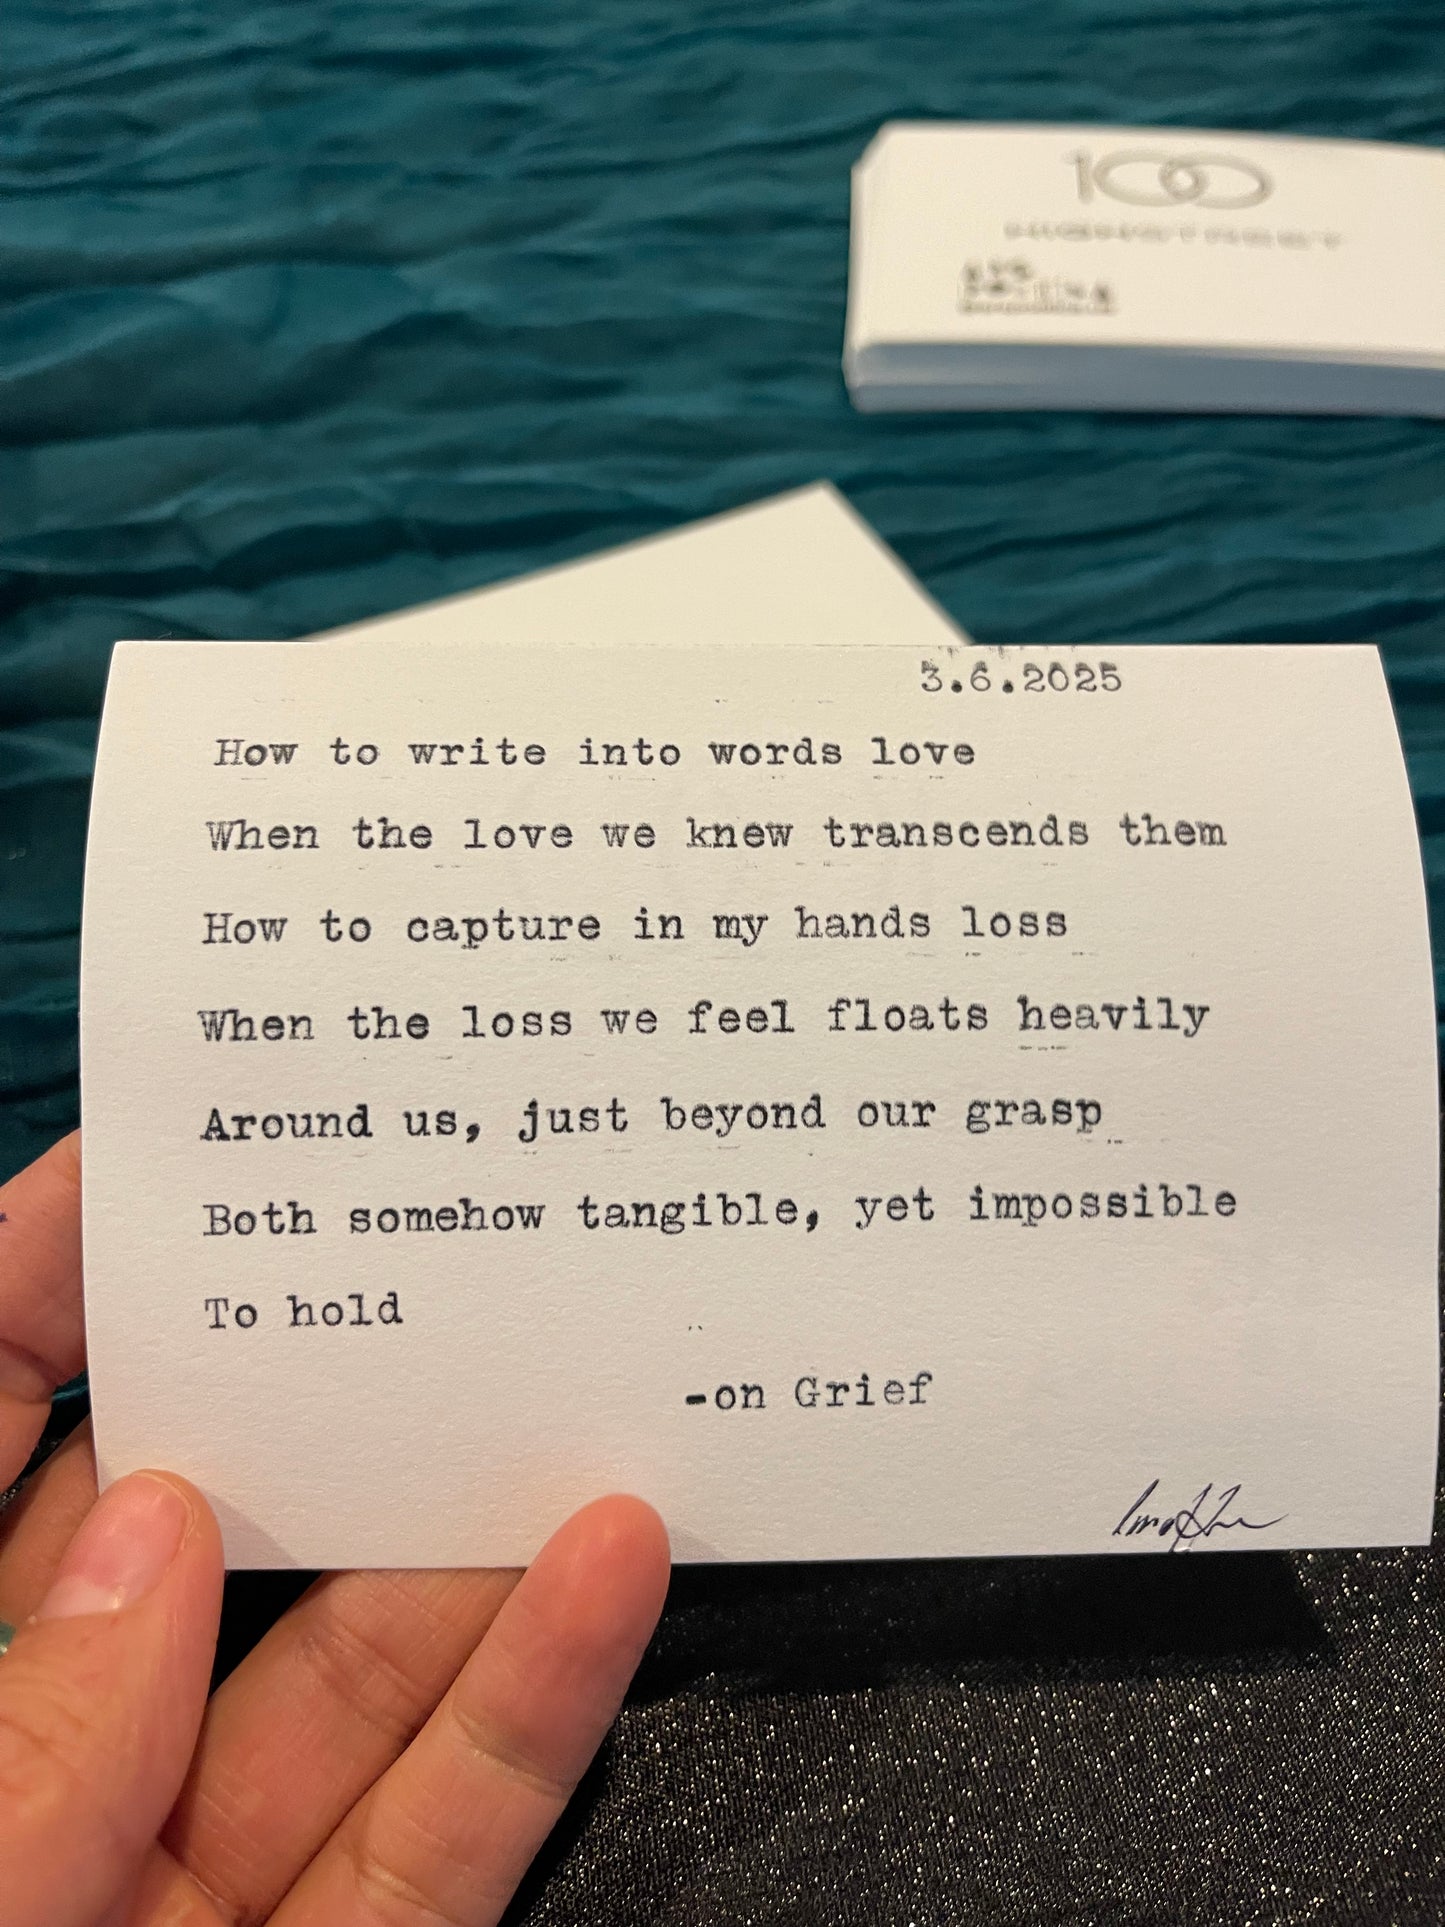 100
3.6.2025
How to write into words love
When the love we knew transcends them
How to capture in my hands loss
When the loss we feel floats heavily
Around us, just beyond our grasp
Both somehow tangible, yet impossible
To hold
-on Grief